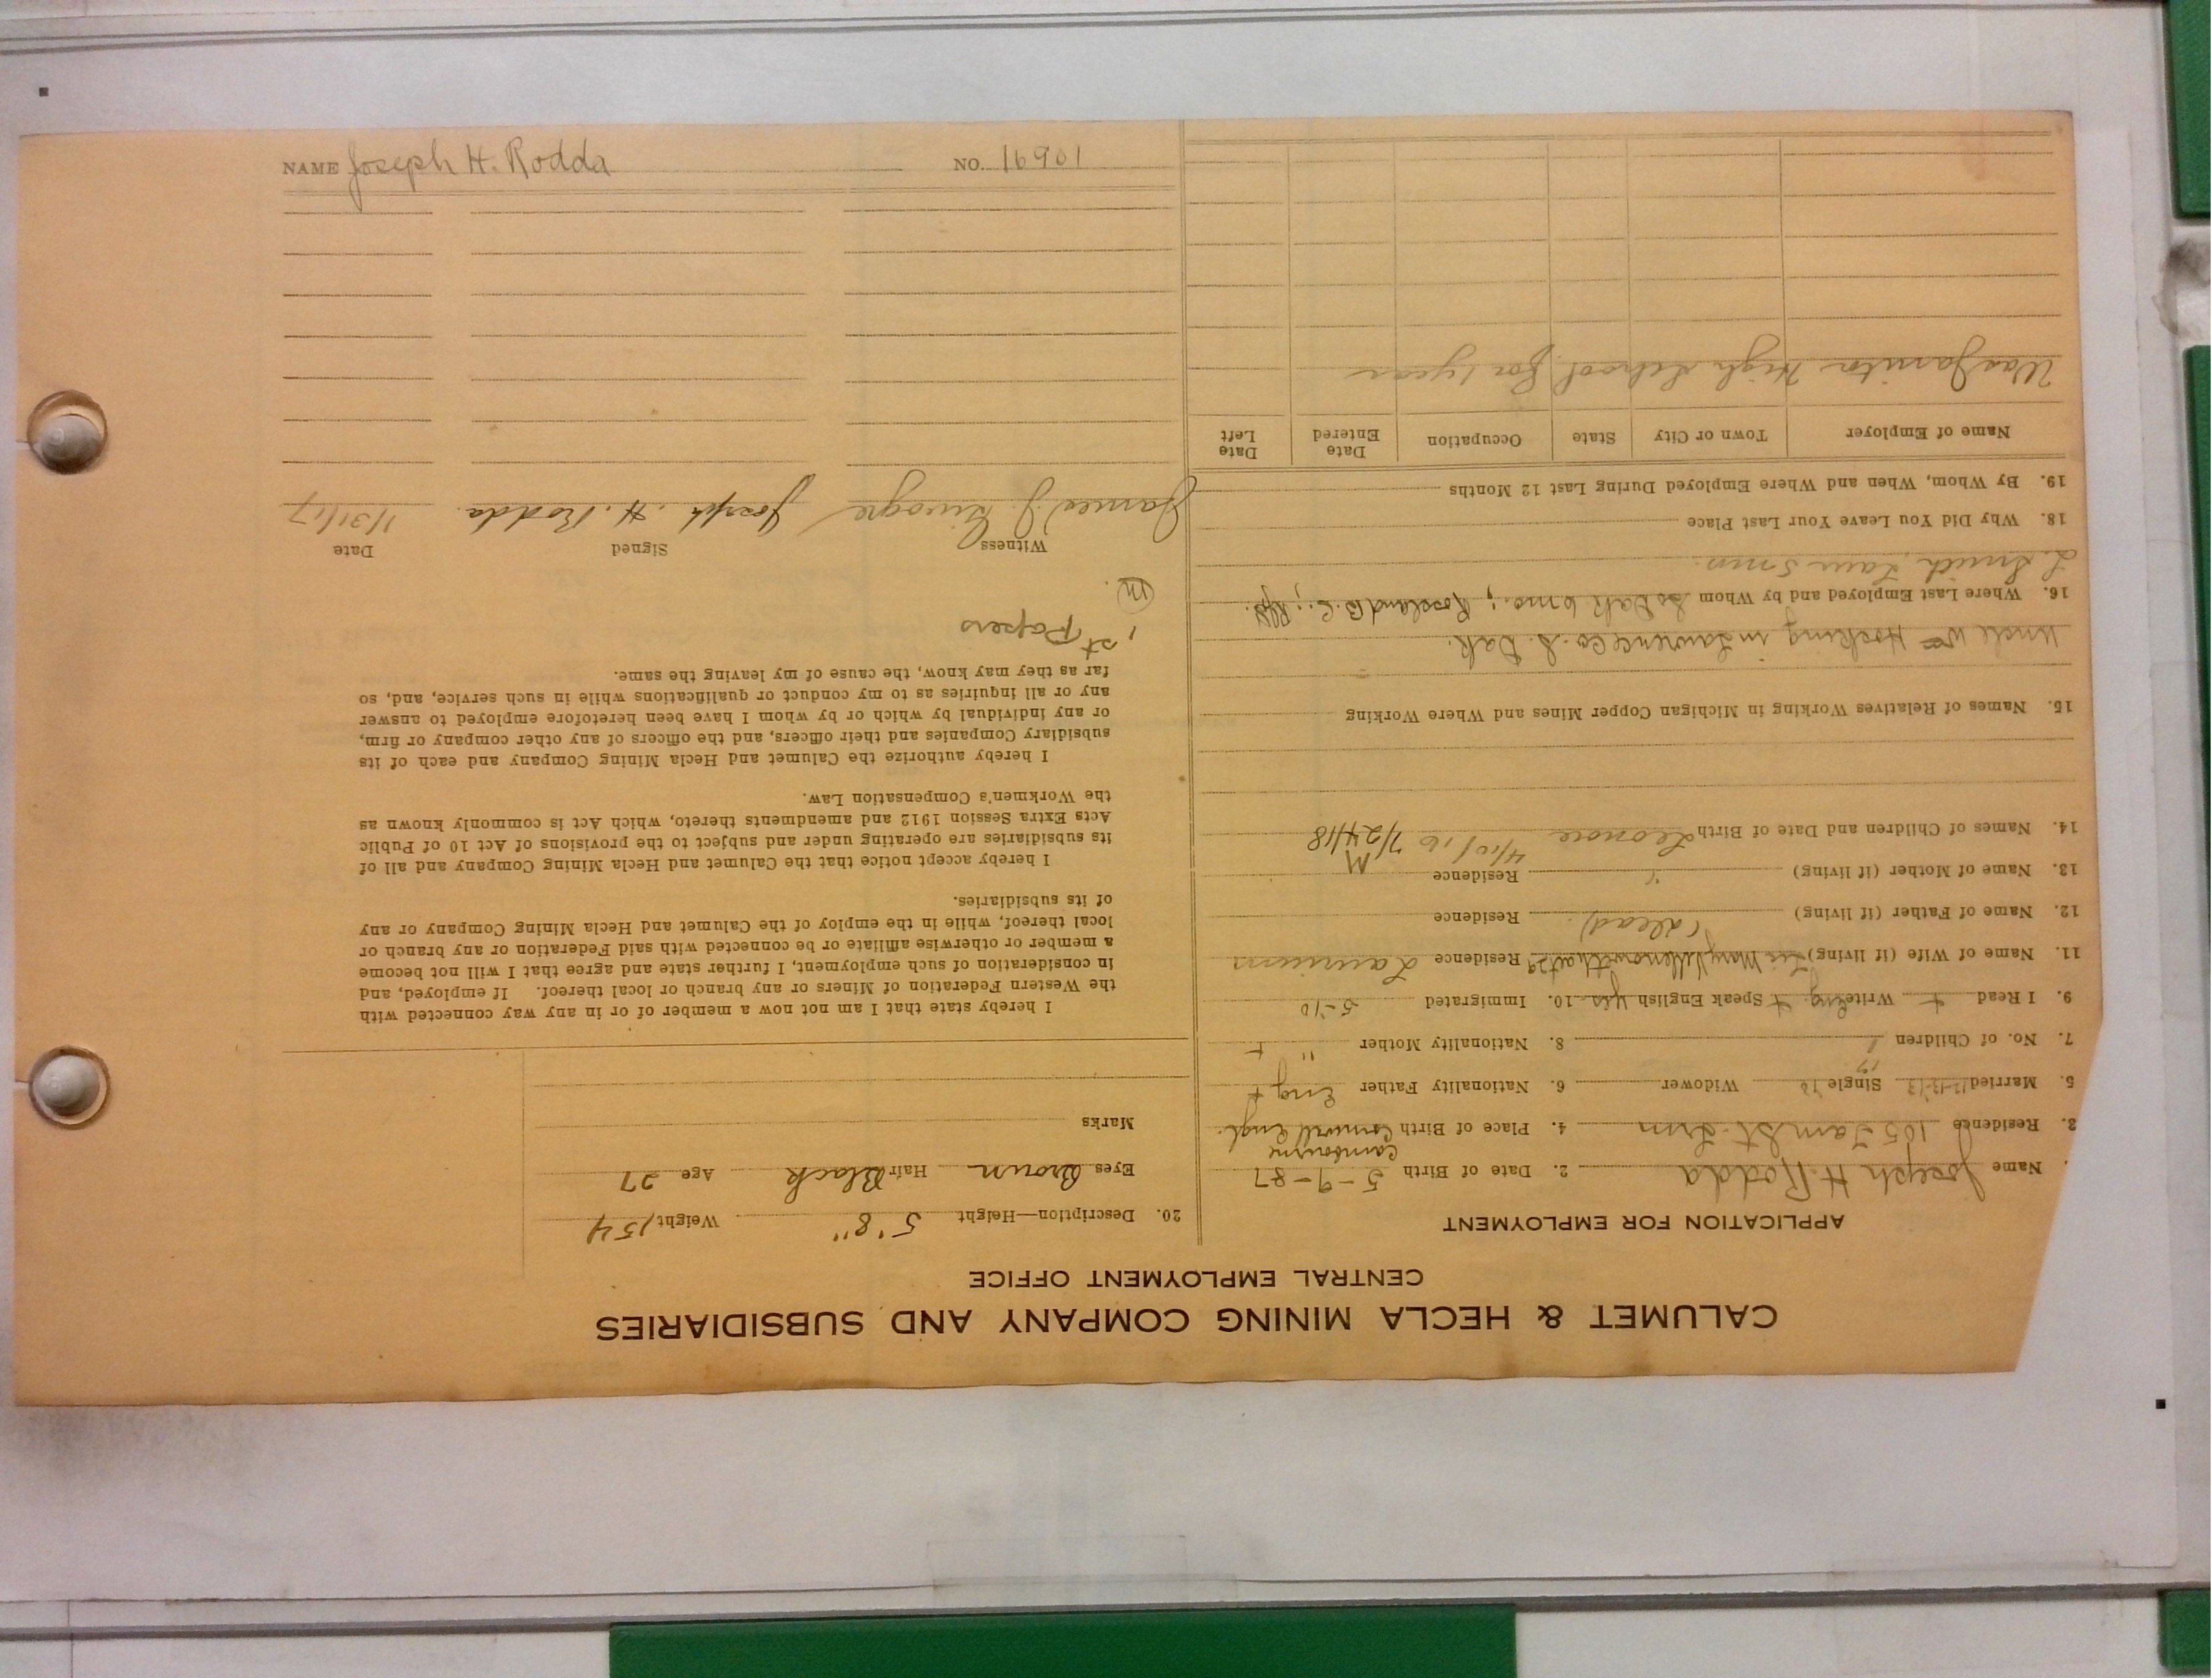 CALUMET & HECLA MINING COMPANY AND SUBSIDIARIES
CENTRAL EMPLOYMENT OFFICE
APPLICATION FOR EMPLOYMENT
Name Joseph H. Rodda 2. Date of Birth 5-9-87
Cambourne
3. Residence 105 Tam St. 4. Place of Birth Cornwall Engl.
5. Married 12-13-13 Single Widower 6. Nationality Father Eng +
7. No. of Children 1 8. Nationality Mother " +
9. I Read + Write + Speak English yes 10. Immigrated 5-10
11. Name of Wife (if living) Mary Residence Laurium
12. Name of Father (if living) (dead) Residence
13. Name of Mother (if living) " Residence
14. Names of Children and Date of Birth Leonore 4/10/16 M 7/24/18
15. Names of Relatives Working in Michigan Copper Mines and Where Working
Uncle Wm Hocking in Lawrence Co. S. Dak.
16. Where Last Employed and by Whom So Dak 6 mo.; Rossland B.C.;
18. Why Did You Leave Your Last Place
19. By Whom, When and Where Employed During Last 12 Months
Name of Employer Town or City State Occupation Date Entered Date Left
Was Janitor High School for 1 year
20. Description—Height 5' 8" Weight 154
Eyes Brown Hair Black Age 27
Marks
I hereby state that I am not now a member of or in any way connected with
the Western Federation of Miners or any branch or local thereof. If employed, and
in consideration of such employment, I further state and agree that I will not become
a member or otherwise affiliate or be connected with said Federation or any branch or
local thereof, while in the employ of the Calumet and Hecla Mining Company or any
of its subsidiaries.
I hereby accept notice that the Calumet and Hecla Mining Company and all of
its subsidiaries are operating under and subject to the provisions of Act 10 of Public
Acts Extra Session 1912 and amendments thereto, which Act is commonly known as
the Workmen's Compensation Law.
I hereby authorize the Calumet and Hecla Mining Company and each of its
subsidiary Companies and their officers, and the officers of any other company or firm,
or any individual by which or by whom I have been heretofore employed to answer
any or all inquiries as to my conduct or qualifications while in such service, and, so
far as they may know, the cause of my leaving the same.
1st Papers
M
Witness Signed Date
James J. Joseph H. Rodda. 1/31/17
NAME Joseph H. Rodda NO. 16901